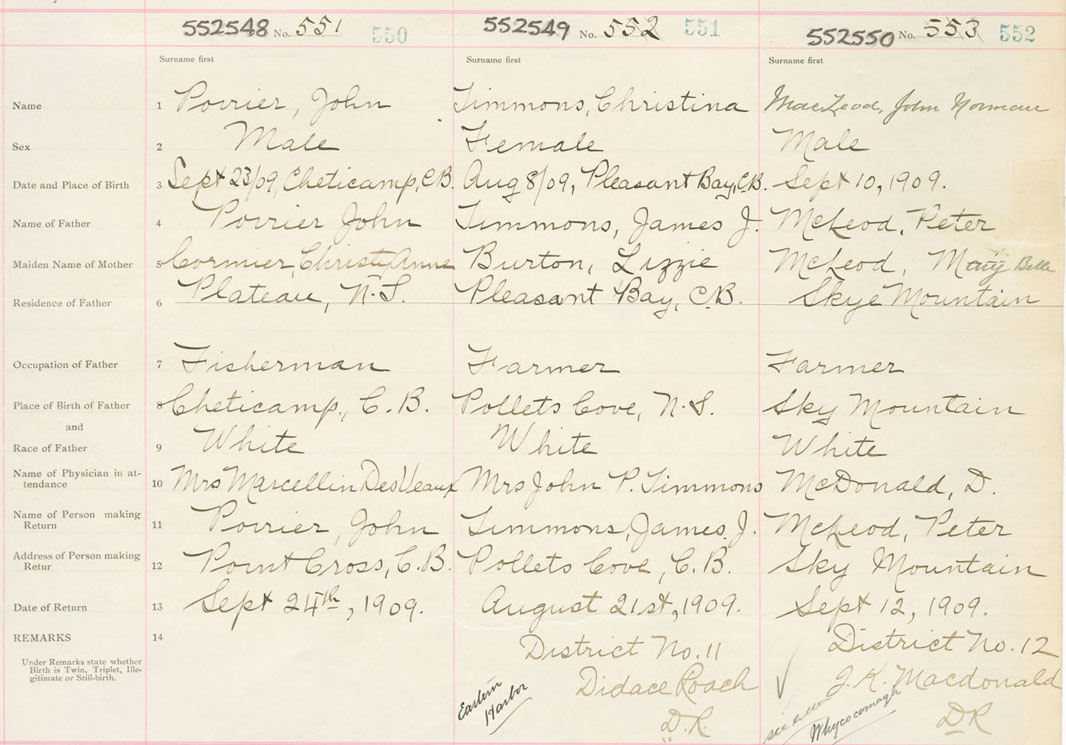 552548 No. 551 550 552549 No. 552 551 552550 No. 553 552
Surname first Surname first Surname first
Name 1 Poirier, John Timmons, Christina MacLeod, John Norman
Sex 2 Male Female Male
Date and Place of Birth 3 Sept 23/09, Cheticamp, C.B. Aug 8/09, Pleasant Bay, C.B. Sept 10, 1909.
Name of Father 4 Poirier John Timmons, James J. McLeod, Peter
Maiden Name of Mother 5 Cormier, Christy Anne Burton, Lizzie McLeod, Mary Bella
Residence of Father 6 Plateau, N.S. Pleasant Bay, C.B. Skye Mountain
Occupation of Father 7 Fisherman Farmer Farmer
Place of Birth of Father 8 Cheticamp, C.B. Pollets Cove, N.S. Sky Mountain
and
Race of Father 9 White White White
Name of Physician in at-
tendance 10 Mrs Marcellin DesVeaux Mrs John P. Timmons McDonald, D.
Name of Person making
Return 11 Poirier, John Timmons, James J. McLeod, Peter
Address of Person making
Retur 12 Point Cross, C.B. Pollets Cove, C.B. Sky Mountain
Date of Return 13 Sept 24th, 1909. August 21st, 1909. Sept 12, 1909.
REMARKS 14 District No. 11 District No. 12
Under Remarks state whether
Birth is Twin, Triplet, Ille-
gitimate or Still-birth.
Eastern
Harbor
Didace Roach
D.R.
J. K. Macdonald
D R
see
Whycocomagh